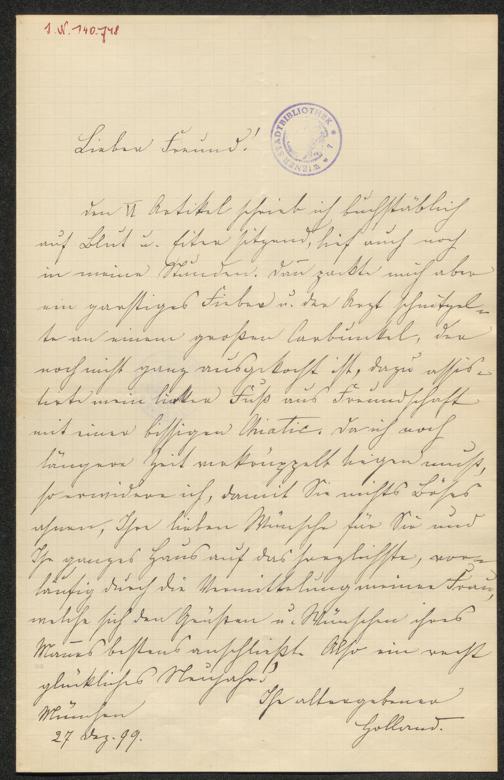 I.N. 140.748
WIENER STADTBIBLIOTHEK
Lieber Freund!
den VI Artikel schrieb ich buchstäblich
auf Blut u. Eiter sitzend, lief auch noch
in meine Stunden. Dan̄ packte mich aber
ein garstiges Fieber u. der Arzt schnitzel-
te an einem großen Carbunkel, der
noch nicht ganz ausgekocht ist, dazu assis-
tirte mein linker Fuß aus Freundschaft
mit einer bissigen . Da ich noch
längere Zeit verkrüppelt liegen muß,
so erwidere ich, damit Sie nichts Böses
ahnen, Ihre lieben Wünsche für Sie und
Ihr ganzes Haus auf das herzlichste, vor-
läufig durch die Vermittelung meiner Frau,
welche sich den Grüßen u. Wünschen ihres
Man̄es bestens anschließt. Also ein recht
glückliches Neujahr!
Ihr altergebener
Holland.
München
27 Dez. 99.